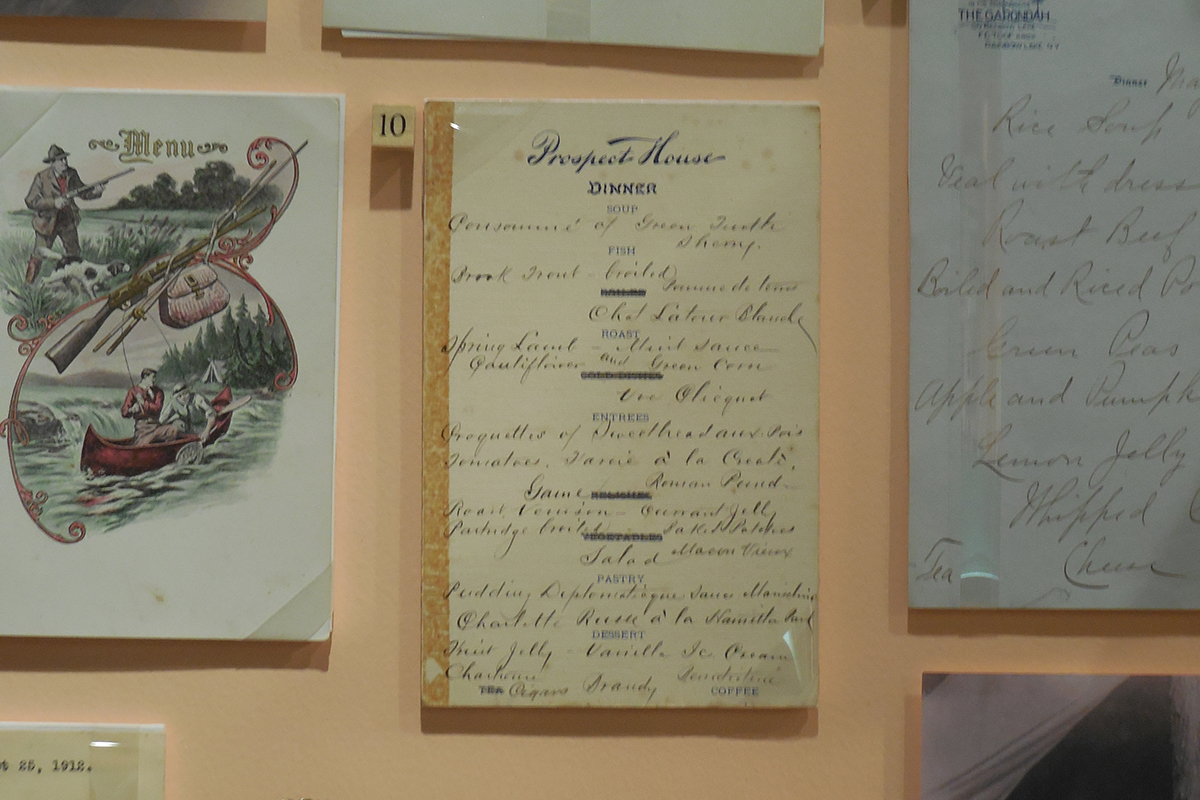 Menu
10
Prospect House
DINNER
SOUP
Consommé of Green Turtle
Sherry.
FISH
Brook Trout - broiled Pomme de terre
BOILED
Chat Latour Blanche
ROAST
Spring Lamb - Mint sauce
Cauliflower and Green Corn
COLD DISHES
Clicquot
ENTREES
Croquettes of Sweetbread aux Pois
Tomatoes, Farcie à la
Game RELISHES Roman Punch
Roast Venison - Currant Jelly
Partridge broiled Potatoes
VEGETABLES
Salad Macon Vieux
PASTRY
Pudding Diplomatique Sauce
Charlotte Russe à la Hamilton Park
DESSERT
Fruit Jelly - Vanilla Ice Cream
Chartreuse Benedictine
TEA Cigars Brandy COFFEE
THE GARONDAH
Dinner
Rice Soup
Veal with dress
Roast Beef
Boiled and Riced Po
Green Peas
Apple and Pumpk
Lemon Jelly
Whipped C
Tea Cheese
25, 1912.